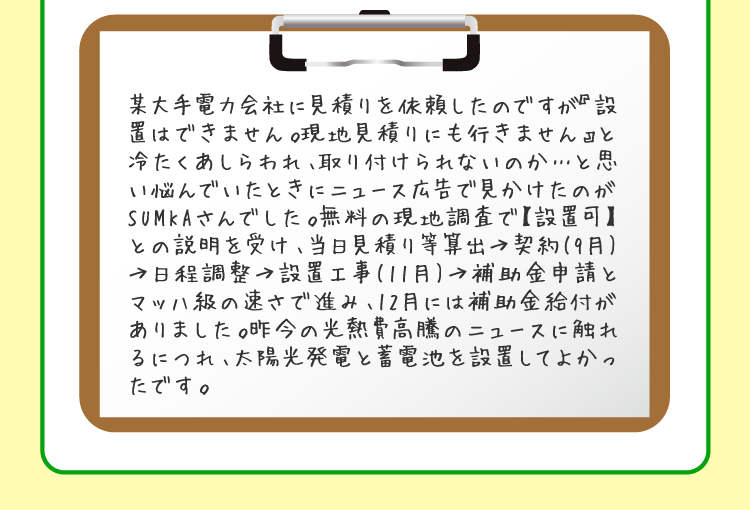 某大手電力会社に見積りを依頼したのですが『設
置はできません。現地見積りにも行きません』と
冷たくあしらわれ、取り付けられないのか…と思
い悩んでいたときにニュース広告で見かけたのが
SUMKAさんでした。無料の現地調査で【設置可】
との説明を受け、当日見積り等算出→契約(9月)
→日程調整→設置工事(11月)→補助金申請と
マッハ級の速さで進み、12月には補助金給付が
ありました。昨今の光熱費高騰のニュースに触れ
るにつれ、太陽光発電と蓄電池を設置してよかっ
たです。